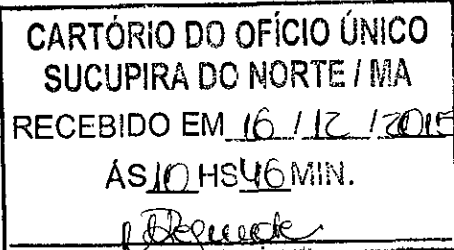 CARTÓRIO DO OFÍCIO ÚNICO
SUCUPIRA DO NORTE / MA
RECEBIDO EM 16 / 12 / 2015
ÀS 10 HS 46 MIN.